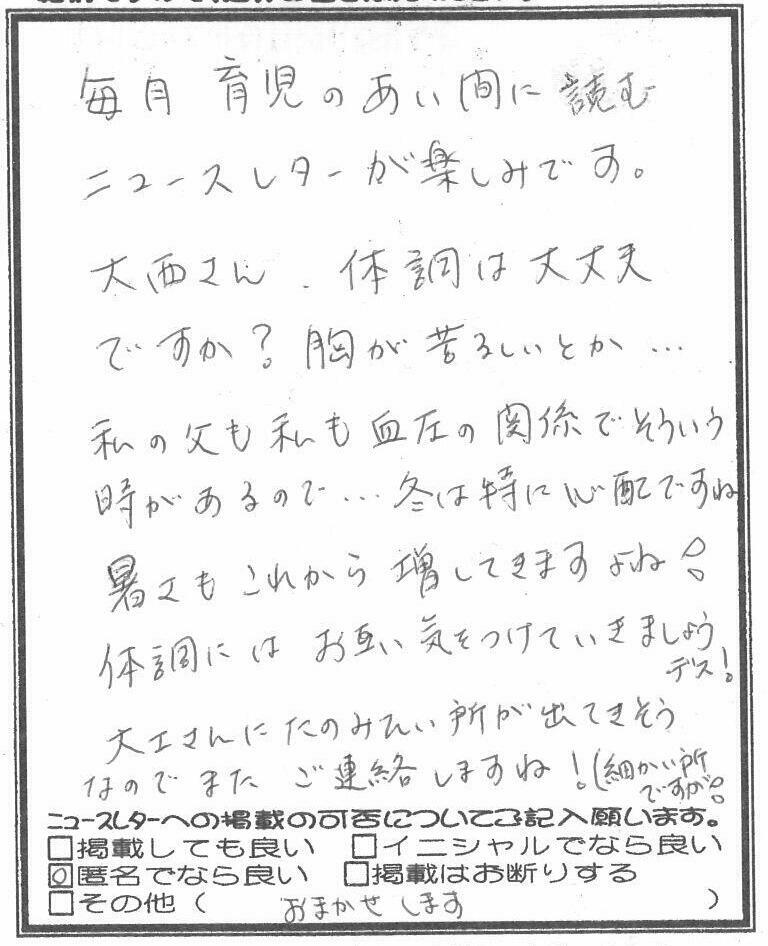 毎月 育児のあい間に 読む
ニュースレターが楽しみです。
大西さん、体調は大丈夫
ですか？胸が苦るしいとか…
私の父も私も血圧の関係でそういう
時があるので…冬は特に心配ですね
暑さもこれから増してきますよね!
体調には お互い気をつけていきましょう
デス!
大工さんにたのみたい所が出てきそう
なのでまた ご連絡しますね！(細かい所
ですが)
ニュースレターへの掲載の可否についてご記入願います。
□掲載しても良い □イニシャルでなら良い
☑匿名でなら良い □掲載はお断りする
□その他（ おまかせします ）